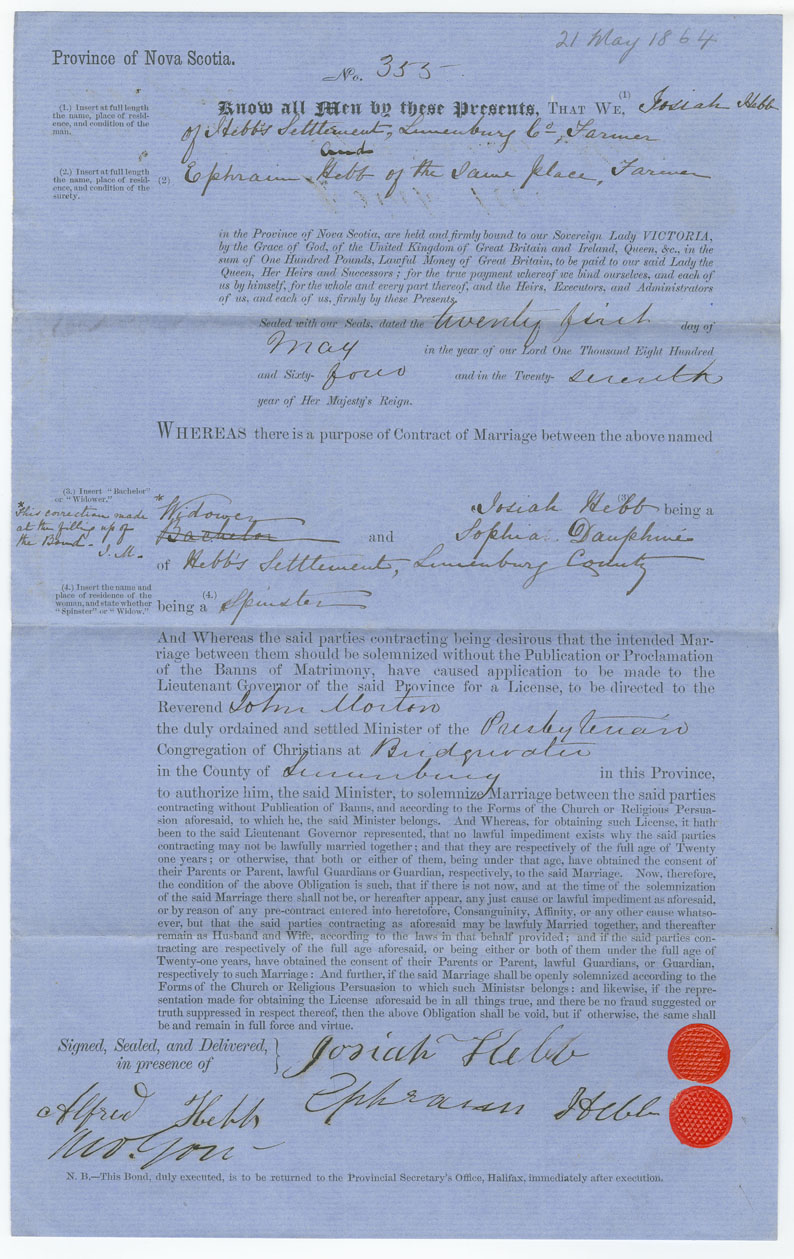 21 May 1864
Province of Nova Scotia.
No. 355
(1.) Insert at full length
the name, place of resid-
ence, and condition of the
man.
Know all Men by these Presents, THAT WE, (1) Josiah Hebb
of Hebb's Settlement, Lunenburg Co, Farmer
and
(2.) Insert at full length
the name, place of resid-
ence, and condition of the
surely.
(2) Ephraim Hebb of the same place, Farmer
in the Province of Nova Scotia, are held and firmly bound to our Sovereign Lady VICTORIA,
by the Grace of God, of the United Kingdom of Great Britain and Ireland, Queen, &c., in the
sum of One Hundred Pounds, Lawful Money of Great Britain, to be paid to our said Lady the
Queen, Her Heirs and Successors; for the true payment whereof we bind ourselves, and each of
us by himself, for the whole and every part thereof, and the Heirs, Executors, and Administrators
of us, and each of us, firmly by these Presents.
Sealed with our Seals, dated the twenty first day of
May in the year of our Lord One Thousand Eight Hundred
and Sixty- four and in the Twenty- seventh
year of Her Majesty's Reign.
WHEREAS there is a purpose of Contract of Marriage between the above named
(3.) Insert "Bachelor"
or "Widower."
Josiah Hebb (3) being a
* This correction made
at the filling up of
the Bond - J. M.
* Widower
Bachelor and Sophia Dauphine
of Hebb's Settlement, Lunenburg County
(4.) Insert the name and
place of residence of the
woman, and state whether
"Spinster" or "Widow."
being a (4.) Spinster
And Whereas the said parties contracting being desirous that the intended Mar-
riage between them should be solemnized without the Publication or Proclamation
of the Banns of Matrimony, have caused application to be made to the
Lieutenant Governor of the said Province for a License, to be directed to the
Reverend John Morton
the duly ordained and settled Minister of the Presbyterian
Congregation of Christians at Bridgewater
in the County of Lunenburg in this Province,
to authorize him, the said Minister, to solemnize Marriage between the said parties
contracting without Publication of Banns, and according to the Forms of the Church or Religious Persua-
sion aforesaid, to which he, the said Minister belongs. And Whereas, for obtaining such License, it hath
been to the said Lieutenant Governor represented, that no lawful impediment exists why the said parties
contracting may not be lawfully married together; and that they are respectively of the full age of Twenty
one years; or otherwise, that both or either of them, being under that age, have obtained the consent of
their Parents or Parent, lawful Guardians or Guardian, respectively, to the said Marriage. Now, therefore,
the condition of the above Obligation is such, that if there is not now, and at the time of the solemnization
of the said Marriage there shall not be, or hereafter appear, any just cause or lawful impediment as aforesaid,
or by reason of any pre-contract entered into heretofore, Consanguinity, Affinity, or any other cause whatso-
ever, but that the said parties contracting as aforesaid may be lawfuly Married together, and thereafter
remain as Husband and Wife, according to the laws in that behalf provided; and if the said parties con-
tracting are respectively of the full age aforesaid, or being either or both of them under the full age of
Twenty-one years, have obtained the consent of their Parents or Parent, lawful Guardians, or Guardian,
respectively to such Marriage: And further, if the said Marriage shall be openly solemnized according to the
Forms of the Church or Religious Persuasion to which such Minister belongs: and likewise, if the repre-
sentation made for obtaining the License aforesaid be in all things true, and there be no fraud suggested or
truth suppressed in respect thereof, then the above Obligation shall be void, but if otherwise, the same shall
be and remain in full force and virtue.
Signed, Sealed, and Delivered,
in presence of
Josiah Hebb
Alfred Hebb
Ephraim Hebb
N. B.—This Bond, duly executed, is to be returned to the Provincial Secretary's Office, Halifax, immediately after execution.